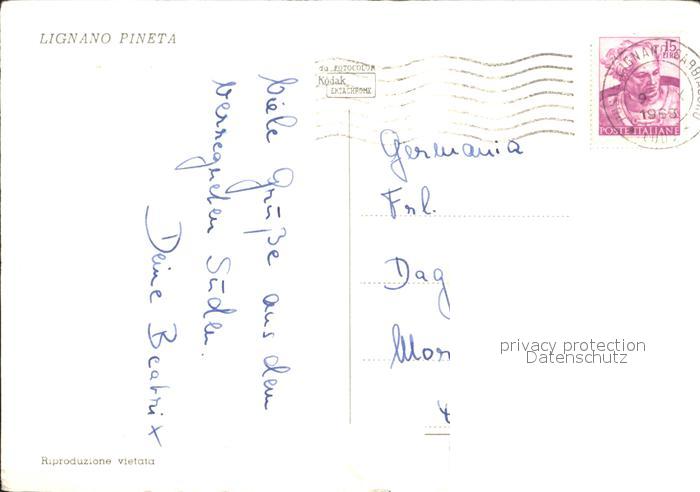 LIGNANO PINETA
da FOTOCOLOR
Kodak
EKTACHROME
15
LIRE
POSTE ITALIANE
LIGNANO SABBIADORO
Viele Grüße aus dem
verregneten Süden.
Deine Beatrix
Germania
Frl.
Dag
Mon
privacy protection
Datenschutz
Riproduzione vietata